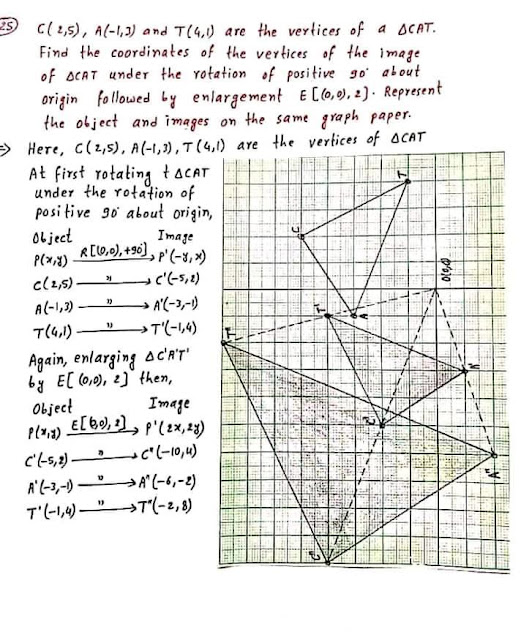 25
C(2,5), A(-1,3) and T(4,1) are the vertices of a ΔCAT.
Find the coordinates of the vertices of the image
of ΔCAT under the rotation of positive 90° about
origin followed by enlargement E[(0,0), 2]. Represent
the object and images on the same graph paper.
⇒ Here, C(2,5), A(-1,3), T(4,1) are the vertices of ΔCAT
At first rotating t ΔCAT
under the rotation of
positive 90° about origin,
Object Image
P(x,y) R[(0,0),+90] → P'(-y,x)
C(2,5) " → C'(-5,2)
A(-1,3) " → A'(-3,-1)
T(4,1) " → T'(-1,4)
Again, enlarging ΔC'A'T'
by E[(0,0), 2] then,
Object Image
P(x,y) E[(0,0), 2] → P'(2x,2y)
C'(-5,2) " → C"(-10,4)
A'(-3,-1) " → A"(-6,-2)
T'(-1,4) " → T"(-2,8)
T
C
O(0,0)
T'
A
T"
A'
C'
A"
C"